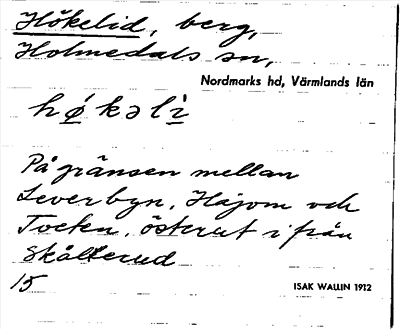 Hökelid, berg,
Holmedals sn,
Nordmarks hd, Värmlands län
hǿkəlì
På gränsen mellan
Leverbyn, Hajom och
Tocken, österut ifrån
Skålterud
15
ISAK WALLIN 1912